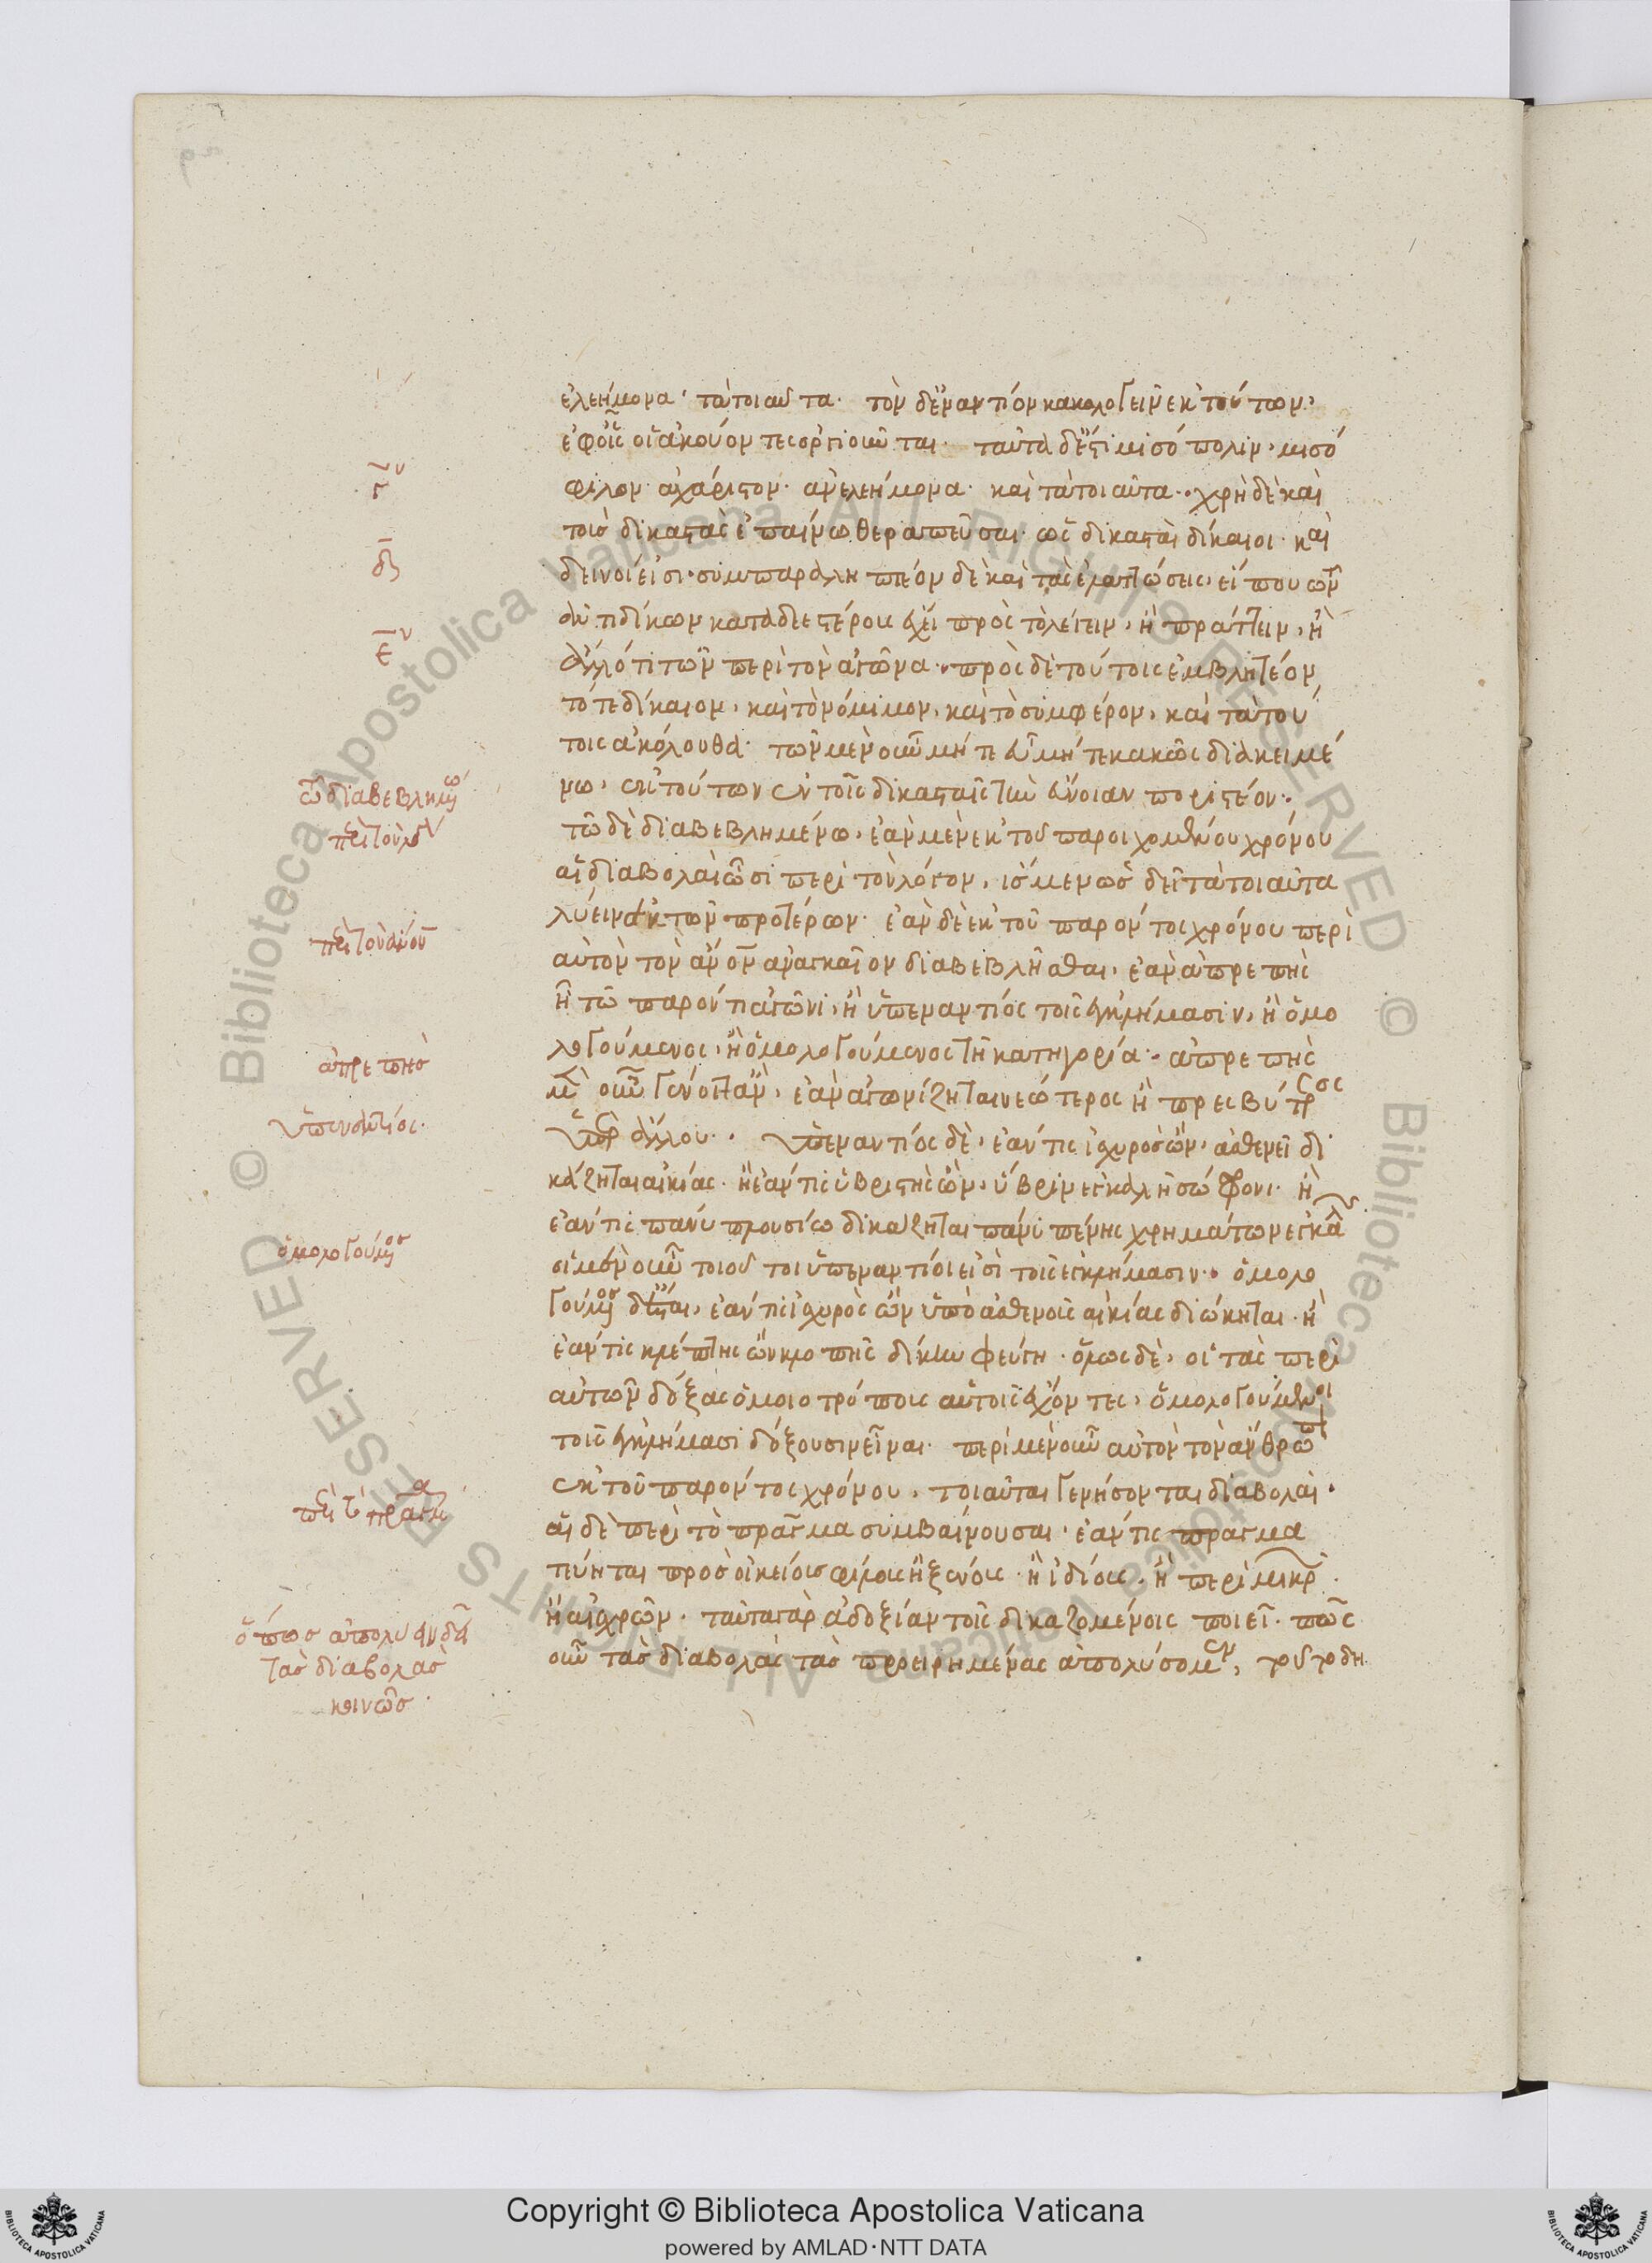 ἐλεήμονα· τὰ τοιαῦτα. τὸν δ' ἐναντίον κακολογεῖν ἐκ τούτων,
ἐφ' οἷς οἱ ἀκούοντες ὀργιοῦνται. ταῦτα δ' ἐστὶ μισόπολιν, μισό
φιλον ἀχάριστον· ἀνελεήμονα· καὶ τὰ τοιαῦτα. χρὴ δὲ καὶ
τοὺς δικαστὰς ἐπαίνω θεραπεῦσαι· ὡς δικασταὶ δίκαιοι καὶ
δεινοί εἰσι· συμπαραληπτέον δὲ καὶ τὰς ἐλαττώσεις, εἴ που τῶν
ἀντιδίκων καταδεεστέρως ἔχει πρὸς τὸ λέγειν, ἢ πράττειν, ἢ
ἄλλό τι τῶν περὶ τὸν ἀγῶνα· πρὸς δὲ τούτοις ἐμβλητέον
τό τε δίκαιον, καὶ τὸ νόμιμον, καὶ τὸ συμφέρον, καὶ τὰ τού
τοις ἀκόλουθα· τῶν μὲν οὖν μήτε εὖ μήτε κακῶς διακειμέ
νω, ἐκ τούτων ἐν τοῖς δικασταῖς τὴν εὔνοιαν ποριστέον·
τῶ δὲ διαβεβλημένω, ἐὰν μὲν ἐκ τοῦ παροιχομένου χρόνου
αἱ διαβολαὶ ὦσι περὶ τὸν λόγον, ἴσμεν ὡς δεῖ τὰ τοιαῦτα
λύειν ἐκ τῶν προτέρων· ἐὰν δὲ ἐκ τοῦ παρόντος χρόνου περὶ
αὐτὸν τὸν ἄνον ἀναγκαῖον διαβεβλῆσθαι, ἐὰν ἀπρεπὴς
ἦ τῶ παρόντι ἀγῶνι, ἢ ὑπεναντίος τοῖς ἐγκλήμασιν, ἢ ὁμο
λογούμενος, ἢ ὁμολογούμενος τῆ κατηγορία· ἀπρεπὴς
μὲν οὖν γένοιτ' ἂν, ἐὰν ἀγωνίζηται νεώτερος ἢ πρεσβύτερος
ὑπὲρ ἄλλου· ὑπεναντίος δὲ, ἐάν τις ἰσχυρὸς ὢν, ἀσθενεῖ δι
κάζηται αἰκίας· ἢ ἐάν τις ὑβριστὴς ὢν, ὕβριν ἐγκαλῆ σώφρονι· ἢ
ἐάν τις πάνυ πλουσίω δικάζηται πάνυ πένης χρημάτων ἐγκαλ
οἱ μὲν οὖν τοιοῦτοι ὑπεναντίοι εἰσὶ τοῖς ἐγκλήμασιν· ὁμολο
γούμενος δ' ἔσται, ἐάν τις ἰσχυρὸς ὢν ὑπὸ ἀσθενοῦς αἰκίας διώκηται· ἢ
ἐάν τις κλέπτης ὢν κλοπῆς δίκην φεύγη· ὅλως δὲ, οἱ τὰς περὶ
αὐτῶν δόξας ὁμοιοτρόπους αὐτοῖς ἔχοντες, ὁμολογούμενοι
τοῖς ἐγκλήμασι δόξουσιν εἶναι· περὶ μὲν οὖν αὐτὸν τὸν ἄνθρωπ
ἐκ τοῦ παρόντος χρόνου, τοιαῦται γενήσονται διαβολαὶ·
αἱ δὲ περὶ τὸ πρᾶγμα συμβαίνουσαι· ἐάν τις πρᾶγμα
γένηται πρὸς οἰκείους φίλους ἢ ξένους· ἢ ἰδίους, ἢ περὶ μικρ
ἢ αἰσχρῶν· ταῦτα γὰρ ἀδοξίαν τοῖς δικαζομένοις ποιεῖ· πῶς
οὖν τὰς διαβολὰς τὰς προειρημένας ἀπολύσομεν, τοῦτο δὴ
γον
δ
εον
τῶ διαβεβλημένω
περὶ τὸν λόγον
περὶ τὸν ἄνον
ἀπρεπὴς
ὑπεναντίος·
ὁμολογούμενος
περὶ τὸ πρᾶγμα
ὅπως ἀπολύειν δεῖ
τὰς διαβολὰς
κοινῶς.
Copyright © Biblioteca Apostolica Vaticana
powered by AMLAD·NTT DATA
BIBLIOTECA APOSTOLICA VATICANA
BIBLIOTECA APOSTOLICA VATICANA
© Biblioteca Apostolica Vaticana ALL RIGHTS RESERVED
© Biblioteca Apostolica Vaticana ALL RIGHTS RESERVED